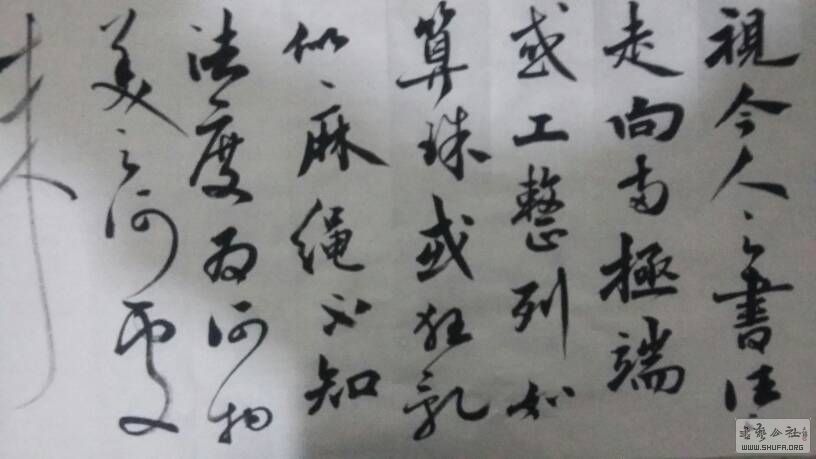 視今人之書法
走向两極端
或工整列如
算珠或狂乱
似麻绳不知
法度为何物
美之何要
来
書藝公社
WWW.SHUFA.ORG